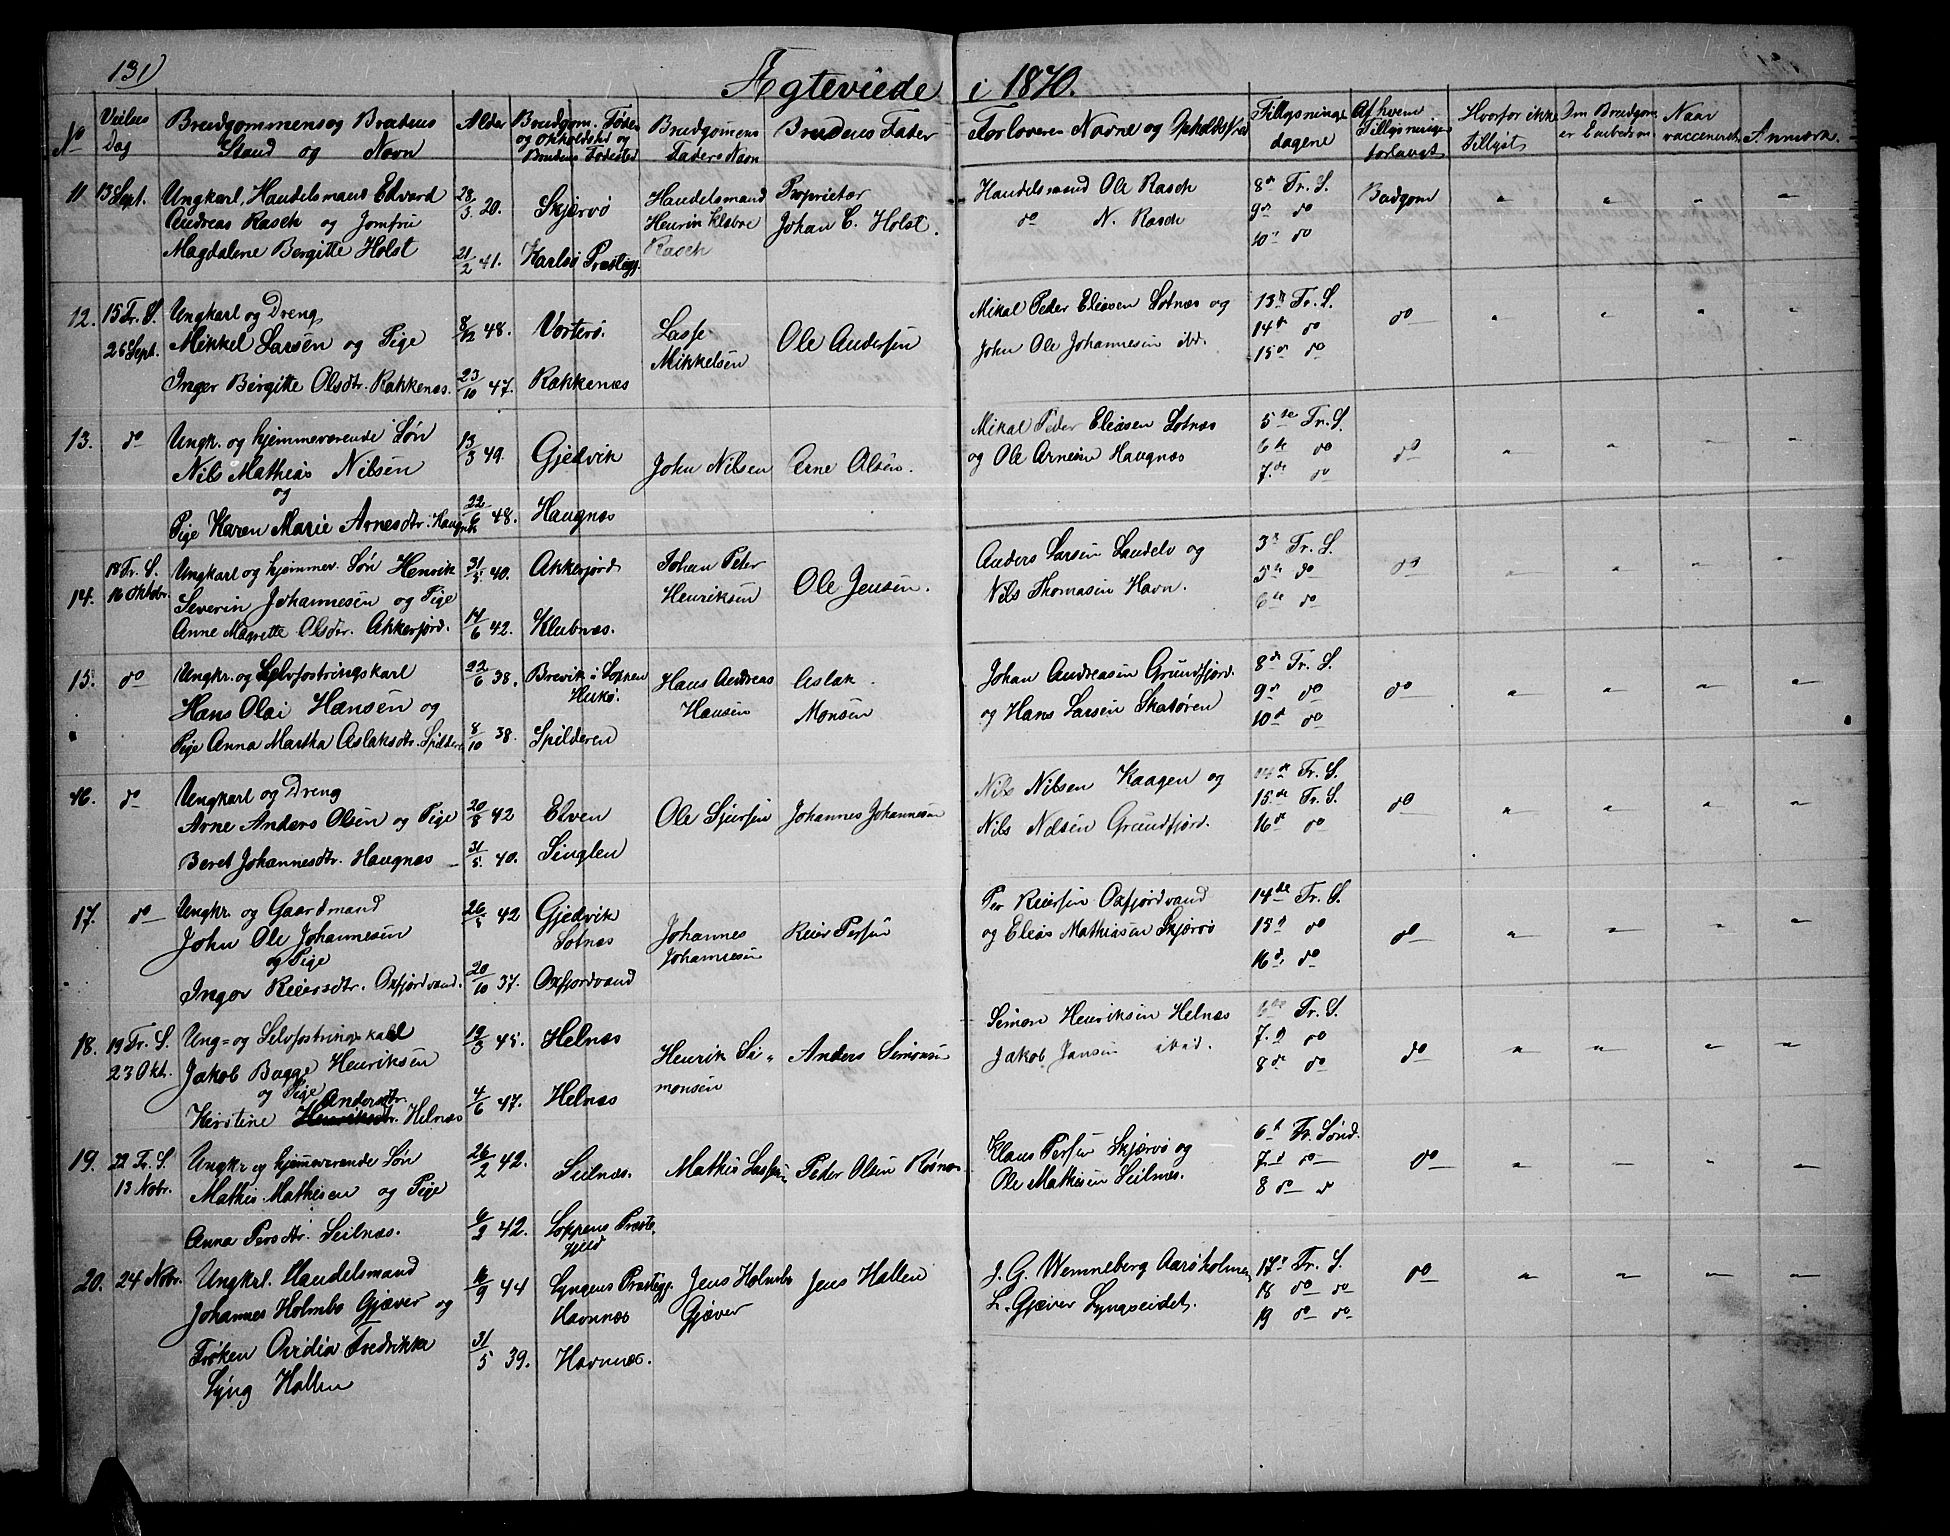 131)
Ægteviede i 1870.
No
Vielses Dag
Brudgommens og Brudens Stand og Navn
Alder
Brudgom. Føde og Opholdsted og Brudens Fødested
Brudgomens Faders Navn
Brudens Fader
Forlovernes Navne og Opholdssted
Tillysnings dagene
Af hvem Tillysningen forlangt
Hvorfor ikke tillyst
Om Brudgom er Embedsm
Naar vaccineret
Anmærk.
11 13 Sept. Ungkarl, Handelsmand Edvard 28/3 20. Skjærvø Handelsmand Proprietær Handelsmand Ole Rasch 8de Tr. S. Budgom " " " "
Andreas Rasch og Jomfru Henrik Klæboe Johan C. Holst. do N. Rasch 9de do
Magdalene Bergitte Holst 21/2 41. Karlsø Præstegj. Rasch 10de do
12. 15 Tr. S. Ungkarl og Dreng 8/12 48. Vorterø. Lasse Ole Andersen Mikal Peder Eliasen Sotnæs og 13de Tr. S. do " " " "
26 Sept. Mikkel Larsen og Pige Mikkelsen John Ole Johannesen ibd. 14de do
Inger Birgitte Olsdtr. Rakkenæs. 23/10 47. Rakkenæs 15de do
13. do Ungk. og hjemmeværende Søn 13/3 49. Gjedvik John Nilsen Arne Olsen. Mikal Peder Eliasen Sotnæs 5te Tr. S. do " " " "
Nils Mathias Nilsen og Ole Arnesen Haugnæs 6te do
og 7de do
Pige Karen Marie Arnesdtr. Haugnæs 22/6 48. Haugnæs
14. 18 Tr. S. Ungkarl og hjemmev. Søn Henrik 31/5 40. Akkerfjord Johan Peter Ole Jensen. Anders Larsen Laudelv og 3de Tr. S. do " " " "
16 Oktobr. Severin Johannesen og Pige Henriksen Nils Thomasen Havn. 5te do
Anne Magrette Olsdtr. Akkerfjord. 14/6 42. Klubnæs. 6te do
15. do Ungkr. og Selvfostringskarl 22/6 38. Brevik i Loppen Hans Andreas Aslak Johan Andreasen Grundfjord 8de Tr. S. do " " " "
Hans Olai Hansen og Hansen Monsen og Hans Larsen Skatøren 9de do
Pige Anna Martha Aslaksdtr. Spilderen 8/10 38. Spilderen 10de do
16. do Ungkarl og Dreng 20/8 42 Elven Ole Sjursen Johannes Johannesen Nils Nilsen Kaagen og 14de Tr. S. do " " " "
Arne Anders Olsen og Pige Nils Nilsen Grundfjord. 15de Tr. S.
Beret Johannesdtr. Haugnæs 31/5 40. Singlen 16de do
17. do Ungkr. og Gaardmand 26/5 42 Gjedvik Johannes Reier Persen Per Reiersen Oxfjordvand 14de Tr. S. do " " " "
John Ole Johannesen Sotnæs Johannesen og Elias Mathiasen Skjærvø 15de do
og Pige 16de do
Inger Reiersdtr. Oxfjordvand. 20/10 37. Oxfjordvand
18. 19 Tr. S. Ung= og Selvfostringskarl 19/3 45. Helnæs Henrik Si= Anders Simonsen Simon Henriksen Helnæs 6te Tr. S. do " " " "
23 Okt. Jakob Bugge Henriksen monsen Jakob Jansen ibid. 7de do
og Pige Andersdtr. 8de do
Kirstine Henriksdtr. Helnæs 4/6 47. Helnæs
19. 22 Tr. S. Ungkr. og hjemmeværende Søn 26/2 42. Seilnæs. Mathis Lassen Peder Olsen Rosnæs Klaus Persen Skjærvø og 6te Tr. Sønd. do " " " "
13 Nobr. Mathis Mathisen og Pige Ole Mathisen Seilnæs. 7de do
Anna Persdtr. Seilnæs. 6/3 42. Loppens Præstegjeld 8 do
20. 24 Nobr. Ungkrl. Handelsmand 16/9 44 Lyngens Præstegj. Jens Holmbo Jens Hallen J. G. Wenneberg Aarøholmen 17de Tr. S. do " " " "
Johannes Holmbo Gjæver og Havnnæs Gjæver L. Gjæver Lyngseidet. 18 do do
Frøken Ovidia Fredrikke 31/5 39. Havnnæs. 19 do do
Lyng Hallen